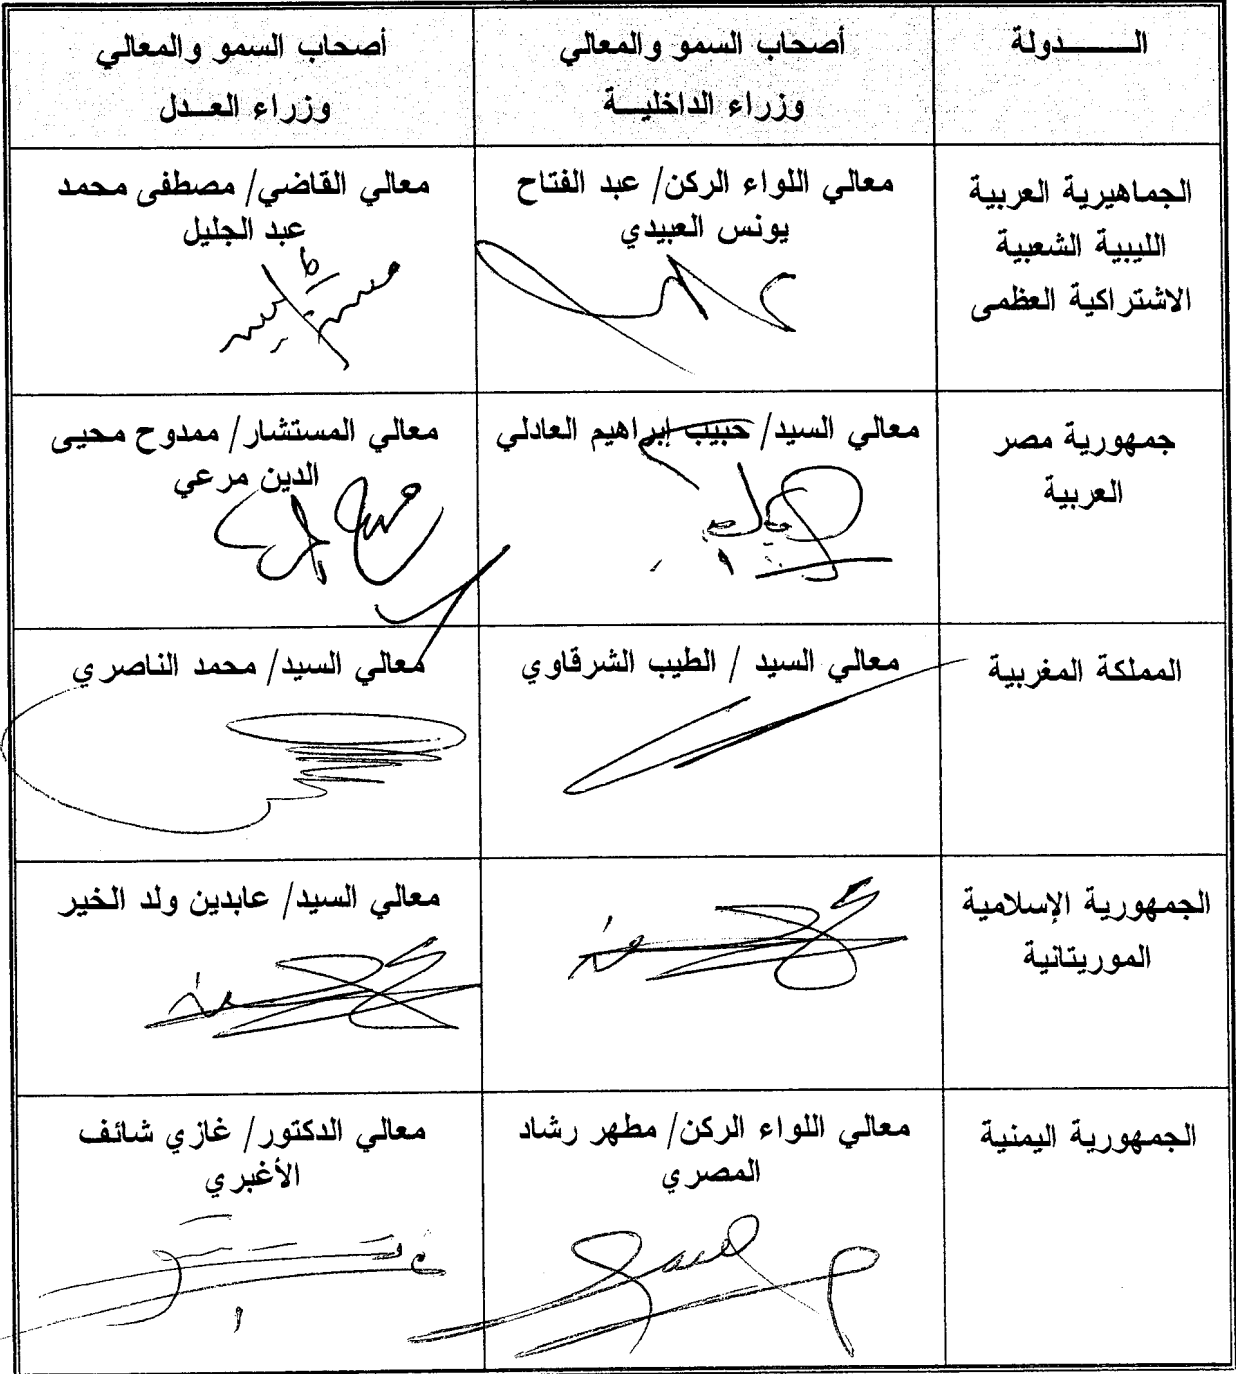 الـــــــدولة
أصحاب السمو والمعالي
وزراء الداخليـــة
أصحاب السمو والمعالي
وزراء العـــدل
الجماهيرية العربية
الليبية الشعبية
الاشتراكية العظمى
معالي اللواء الركن/ عبد الفتاح
يونس العبيدي
معالي القاضي/ مصطفى محمد
عبد الجليل
جمهورية مصر
العربية
معالي السيد/ حبيب إبراهيم العادلي
معالي المستشار/ ممدوح محيى
الدين مرعي
المملكة المغربية
معالي السيد / الطيب الشرقاوي
معالي السيد/ محمد الناصري
الجمهورية الإسلامية
الموريتانية
معالي السيد/ عابدين ولد الخير
الجمهورية اليمنية
معالي اللواء الركن/ مطهر رشاد
المصري
معالي الدكتور/ غازي شائف
الأغبري